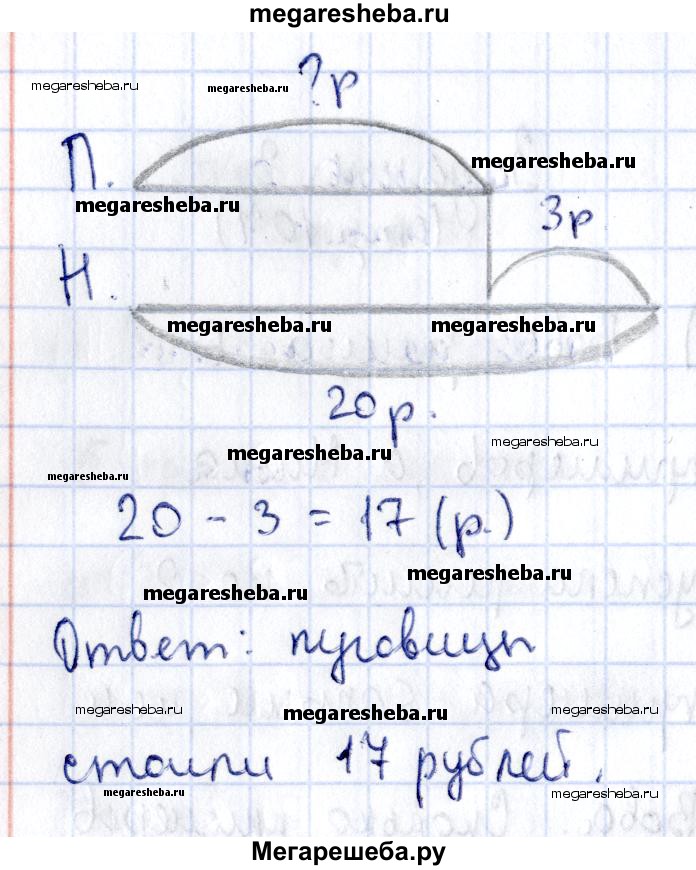 megaresheba.ru
?р
megaresheba.ru
megaresheba.ru
П.
megaresheba.ru
megaresheba.ru
3р
Н.
megaresheba.ru
megaresheba.ru
20р.
megaresheba.ru
megaresheba.ru
megaresheba.ru
20 - 3 = 17 (р.)
megaresheba.ru
megaresheba.ru
Ответ: пуговицы
megaresheba.ru
megaresheba.ru
megaresheba.ru
стоили 17 рублей.
megaresheba.ru
megaresheba.ru
Мегарешеба.ру